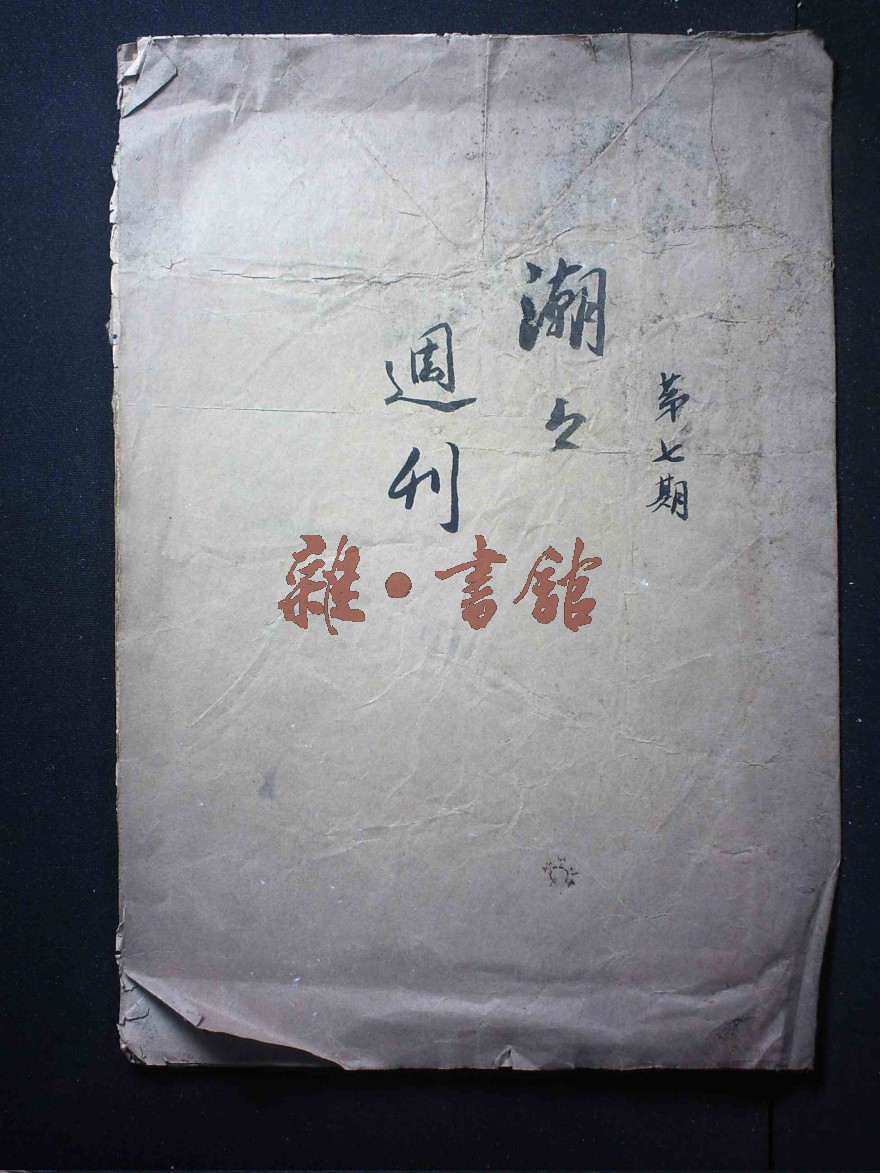 第七期
潮
週刊
雜·書館